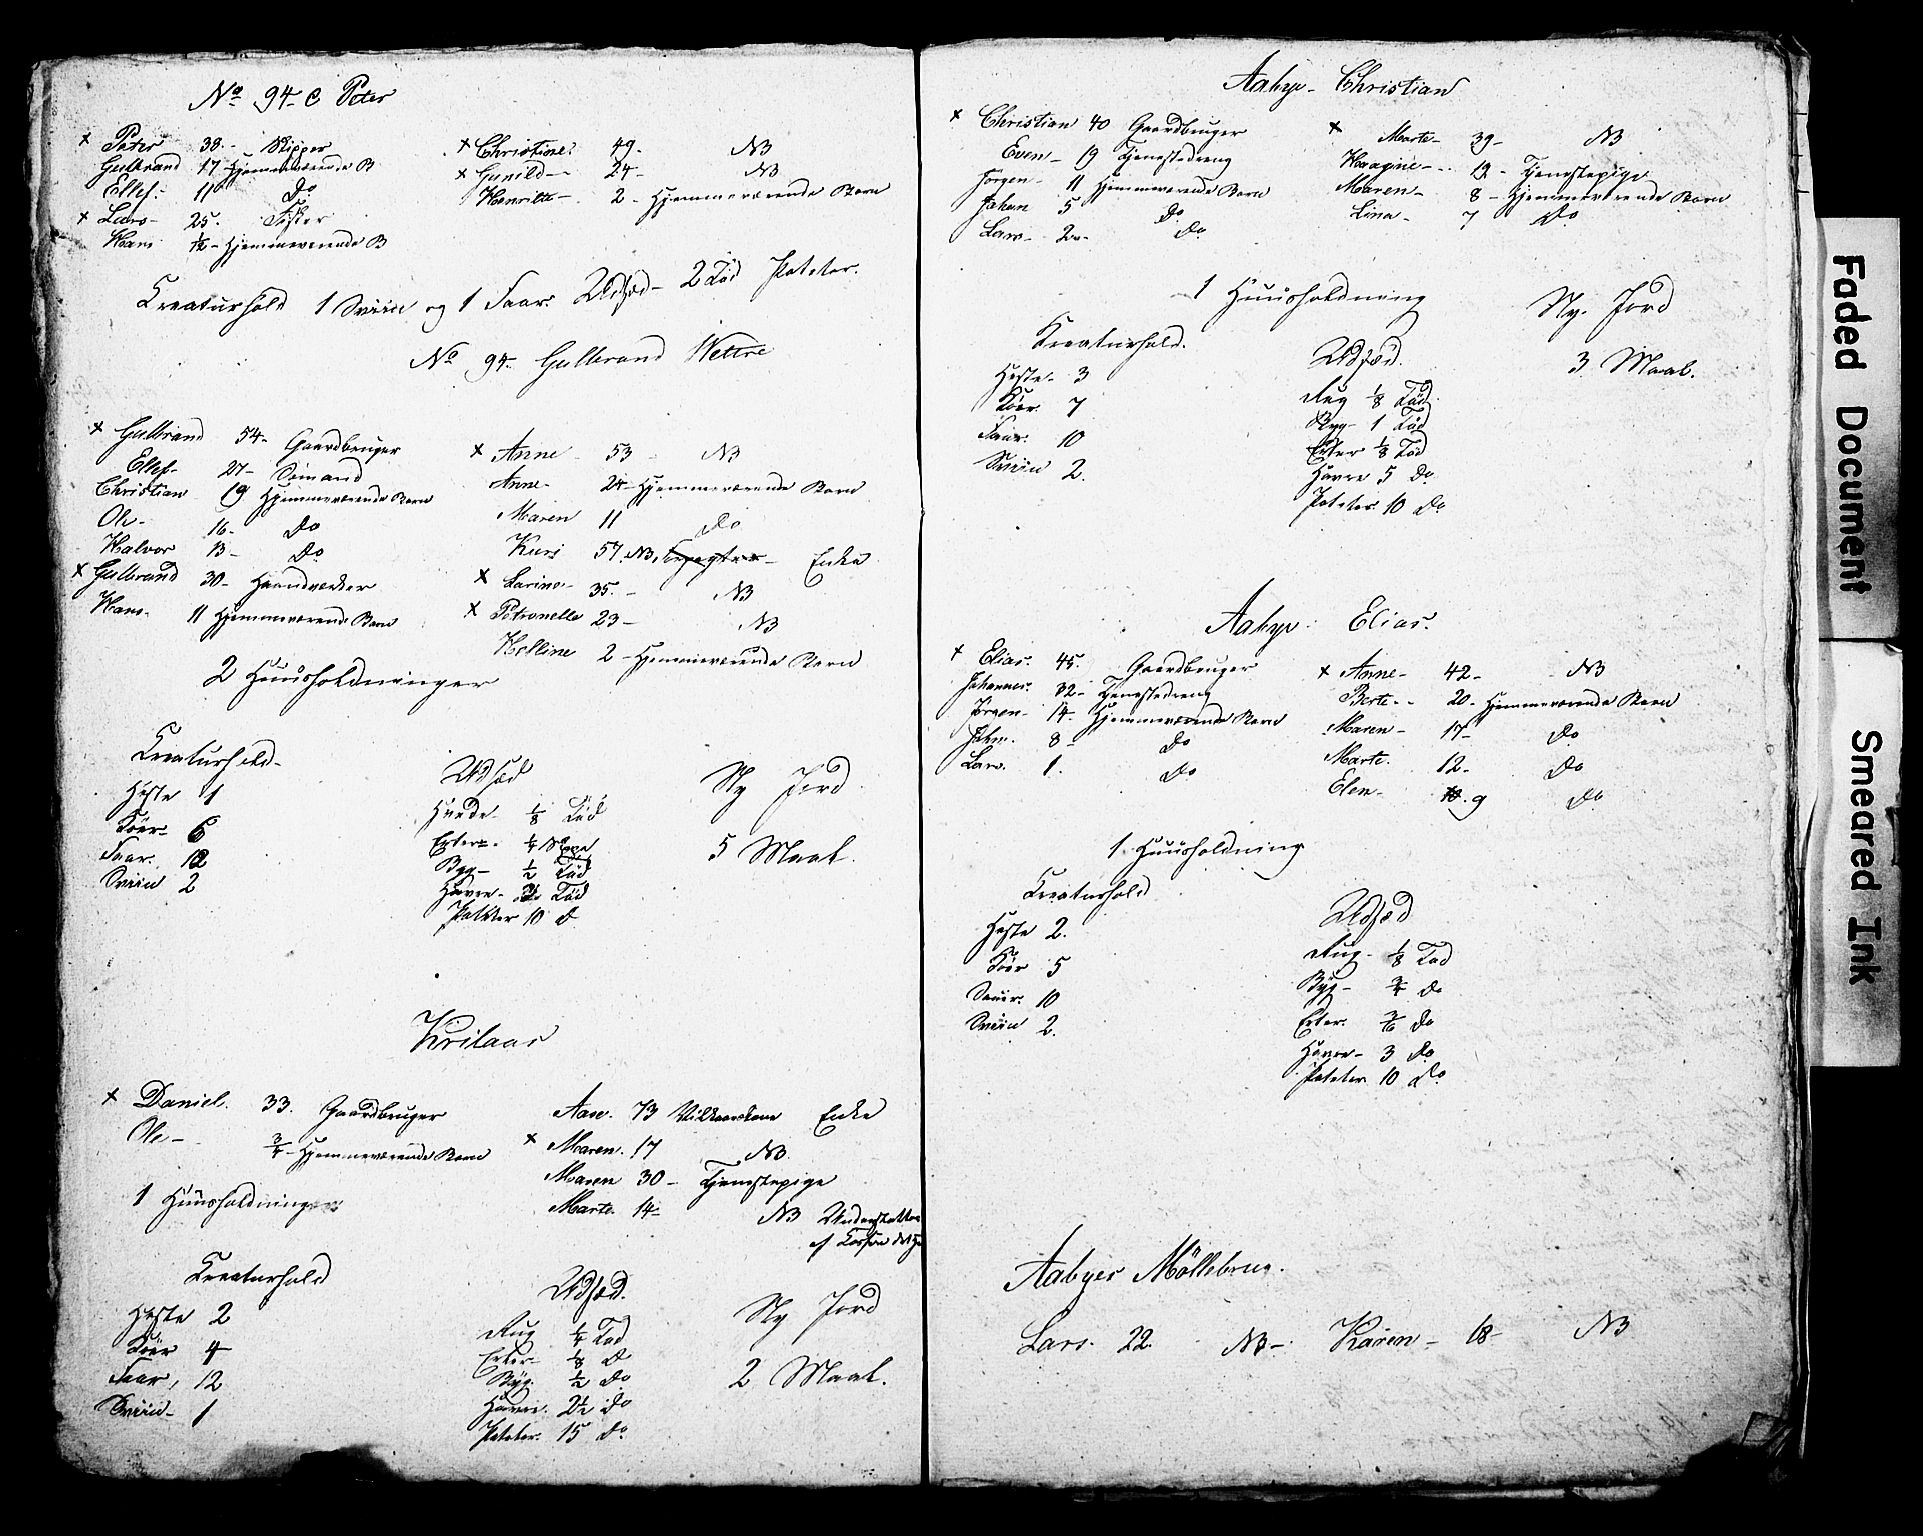 No 94 C Peter
x Peter 38 - Skipper x Christine 49 - NB
Gulbrand 17 Hjemmeværende B x Gunild - 24 - NB
Ellef 11 Do Henritte - 2 - Hjemmeværende Barn
x Lars - 25 - Fisker
Hans 1/12 - Hjemmeværende B
Creaturhold 1 Sviin og 1 Faar. Udsæd - 2 Tød Poteter.
No 94 Gulbrand Wettre
x Gulbrand 54 - Gaardbruger x Anne - 53 - NB
Ellef - 27 - Sømand Anne - 24 - Hjemmeværende Barn
Christian 19 Hjemmeværende Barn Maren 11 Do
Ole - 16 - Do Kari 57. NB. Enke
Halvor 13 - Do x Larine - 35 - NB
x Gulbrand 30 - Haandverker x Petronelle 23 - NB
Hans - 11 Hjemmeværende Barn Helline 2 - Hjemmeværende Barn
2 Huusholdninger
Creaturhold - Udsæd Ny Jord
Heste 1 Hvede - 1/8 Tød 5 Maal.
Kiør - 6 Erter - 1/4
Faar. 12 Byg - 1/2 Tød
Sviin 2 Havre - Tød
Poteter 10 D
Krilaas
x Daniel. 33. Gaardbruger Aase. 73 Vilkaarskone Enke
Ole - 3/4 - Hjemmeværende Barn x Maren. 17 NB.
Maren 30 - Tjenestepige
1 Huusholdninger Marte. 14 - NB Understøttes
af
Creaturhold Udsæd. Ny Jord
Heste 2 Rug 1/4 Tød 2 Maal.
Kiør 4 Erter - 1/8 D
Faar, 12 Byg. 1/2 Do
Sviin - 1 Havre. 2 1/2 Do
Poteter. 15 Do
Aabye - Christian
x Christian 40 Gaardbruger x Marte - 39 - NB
Even - 19 Tjenestedreng Haagine - 12 - Tjenestepige
Jørgen - 11 Hjemmeværende Barn Maren - 8 - Hjemmeværende Barn
Johan 5 Do Lina - 7 Do
Lars - 2 - Do
1 Huusholdning Ny. Jord
Kreaturhold. Udsæd. 3 Maal.
Heste - 3 Rug 1/8 Tød
Kiør. 7 Byg - 1 Tød
Faar. 10 Erter 1/8 Tød
Sviin 2. Havre 5 Do
Poteter. 10 Do
Aabye. Elias.
x Elias. 45. Gaardbruger x Anne - 42 - NB
Johannes. 32 - Tjenestedreng Berte - 20 - Hjemmeværende Barn
Jørgen - 14 - Hjemmeværende Barn Maren - 17 - Do
John. 8 - Do Marte. 12 - Do
Lars. 1. Do Elen - 9 Do
1 Huusholdning
Creaturhold Udsæd
Heste 2. Rug - 1/8 Tød
Kiør 5 Byg - 3/4 Do
10 Erter. Do
Sviin 2. Havre - 3 Do
Poteter 10 Do
Aabyes Møllebrug.
Lars. 22. NB - Karen - 18 - NB
Faded Document
Smeared Ink